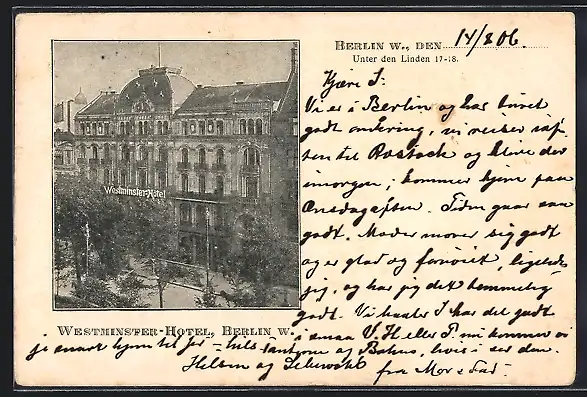 BERLIN W., DEN 14/8 06
Unter den Linden 17-18.
Kjære I:
Vi er i Berlin og har turet
godt omkring, vi reiser iaf-
ten til Rostock og blive der
imorgen; kommer hjem paa
Onsdagaften. Tiden gaar saa
godt. Moder morer sig godt
og er glad og fornøiet, ligeledes
jeg, og har jeg det hemmelig
godt. Vi haaber I har det godt
i smaa V. H eller P. nu kommer vi
je snart hjem til Jer - hils Tanterne og , hvis i ser dem.
Hilsen og
fra Mor & Far.
Westminster-Hotel
WESTMINSTER-HOTEL, BERLIN W.